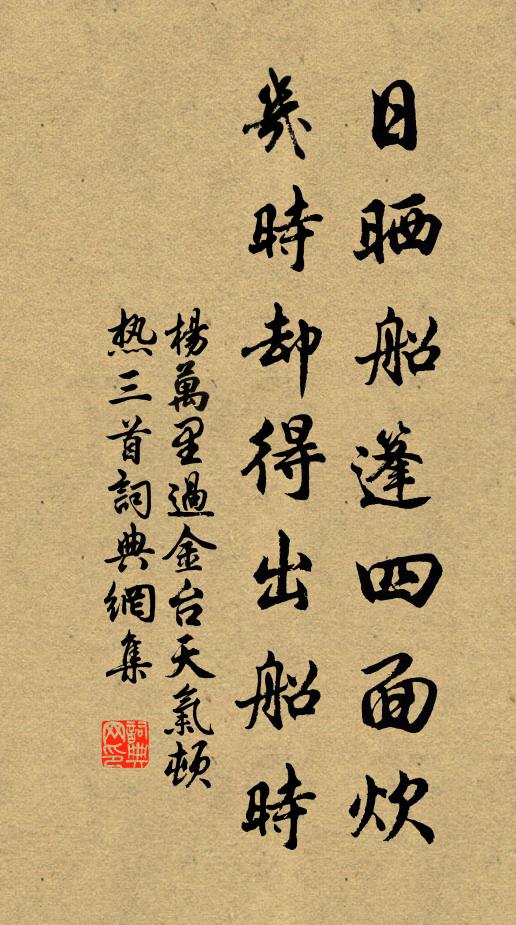 日晒船篷四面炊
幾時却得出船時
楊萬里過金台天氣頓
热三首詞典網集
詞典网印